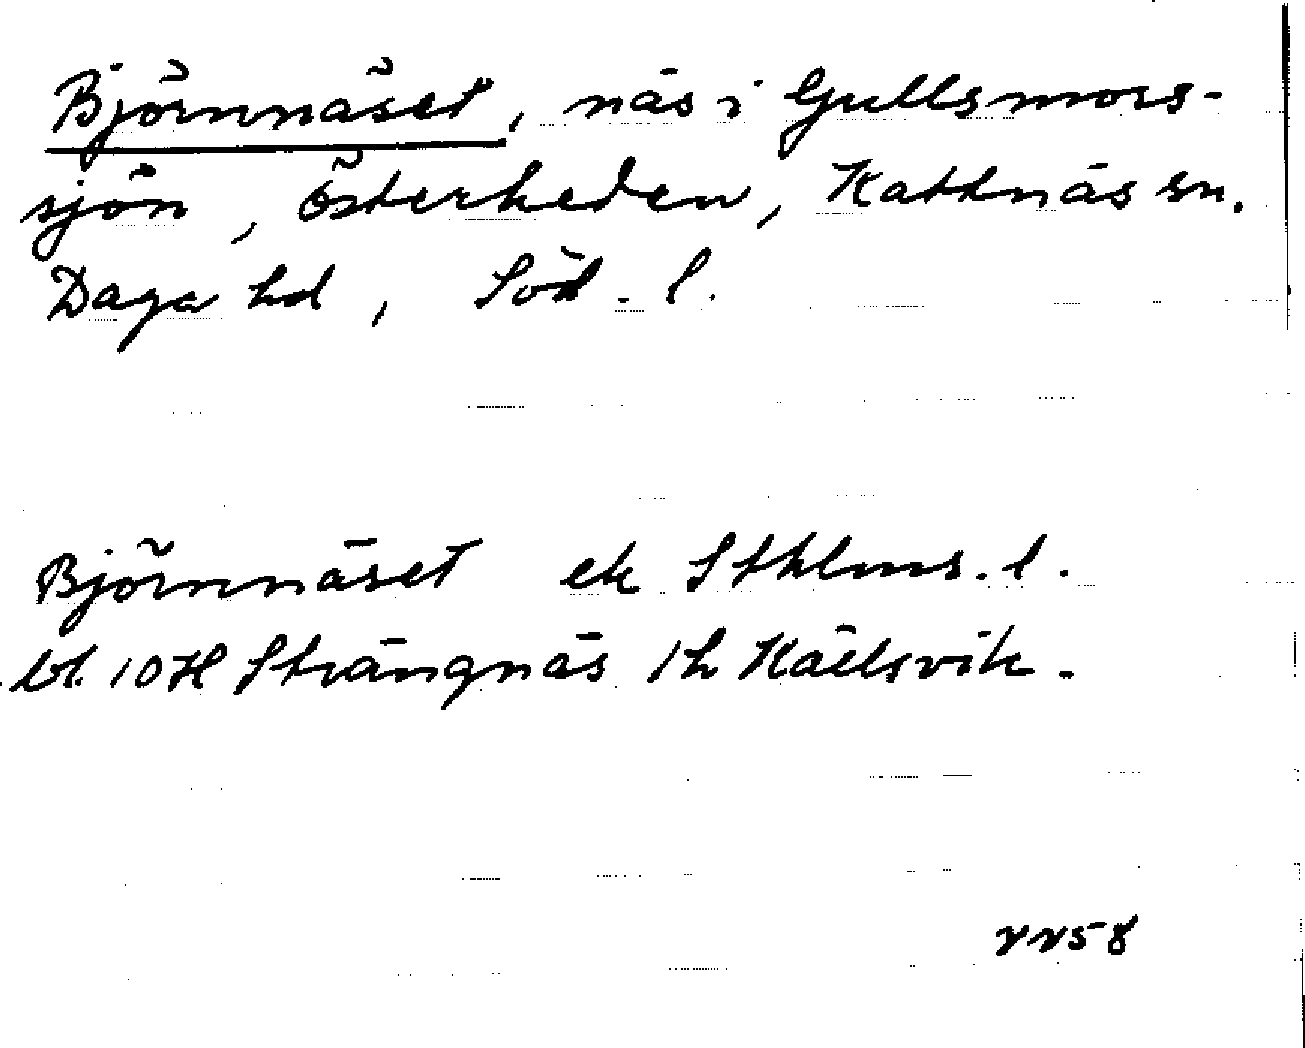 Björnnäset, näs i Gullsmors-
sjön, Österheden, Kattnäs sn.
Daga hd, Söd. l.
Björnnäset ek Sthlms. l.
bl. 10H Strängnäs 1h Källsvik.
VV58